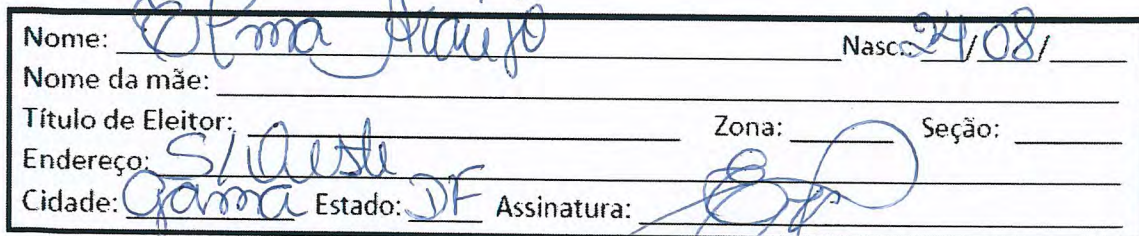 Nome: Araujo Nasc.: 24/08/
Nome da mãe:
Título de Eleitor: Zona: Seção:
Endereço: S/Oeste
Cidade: Gama Estado: DF Assinatura: